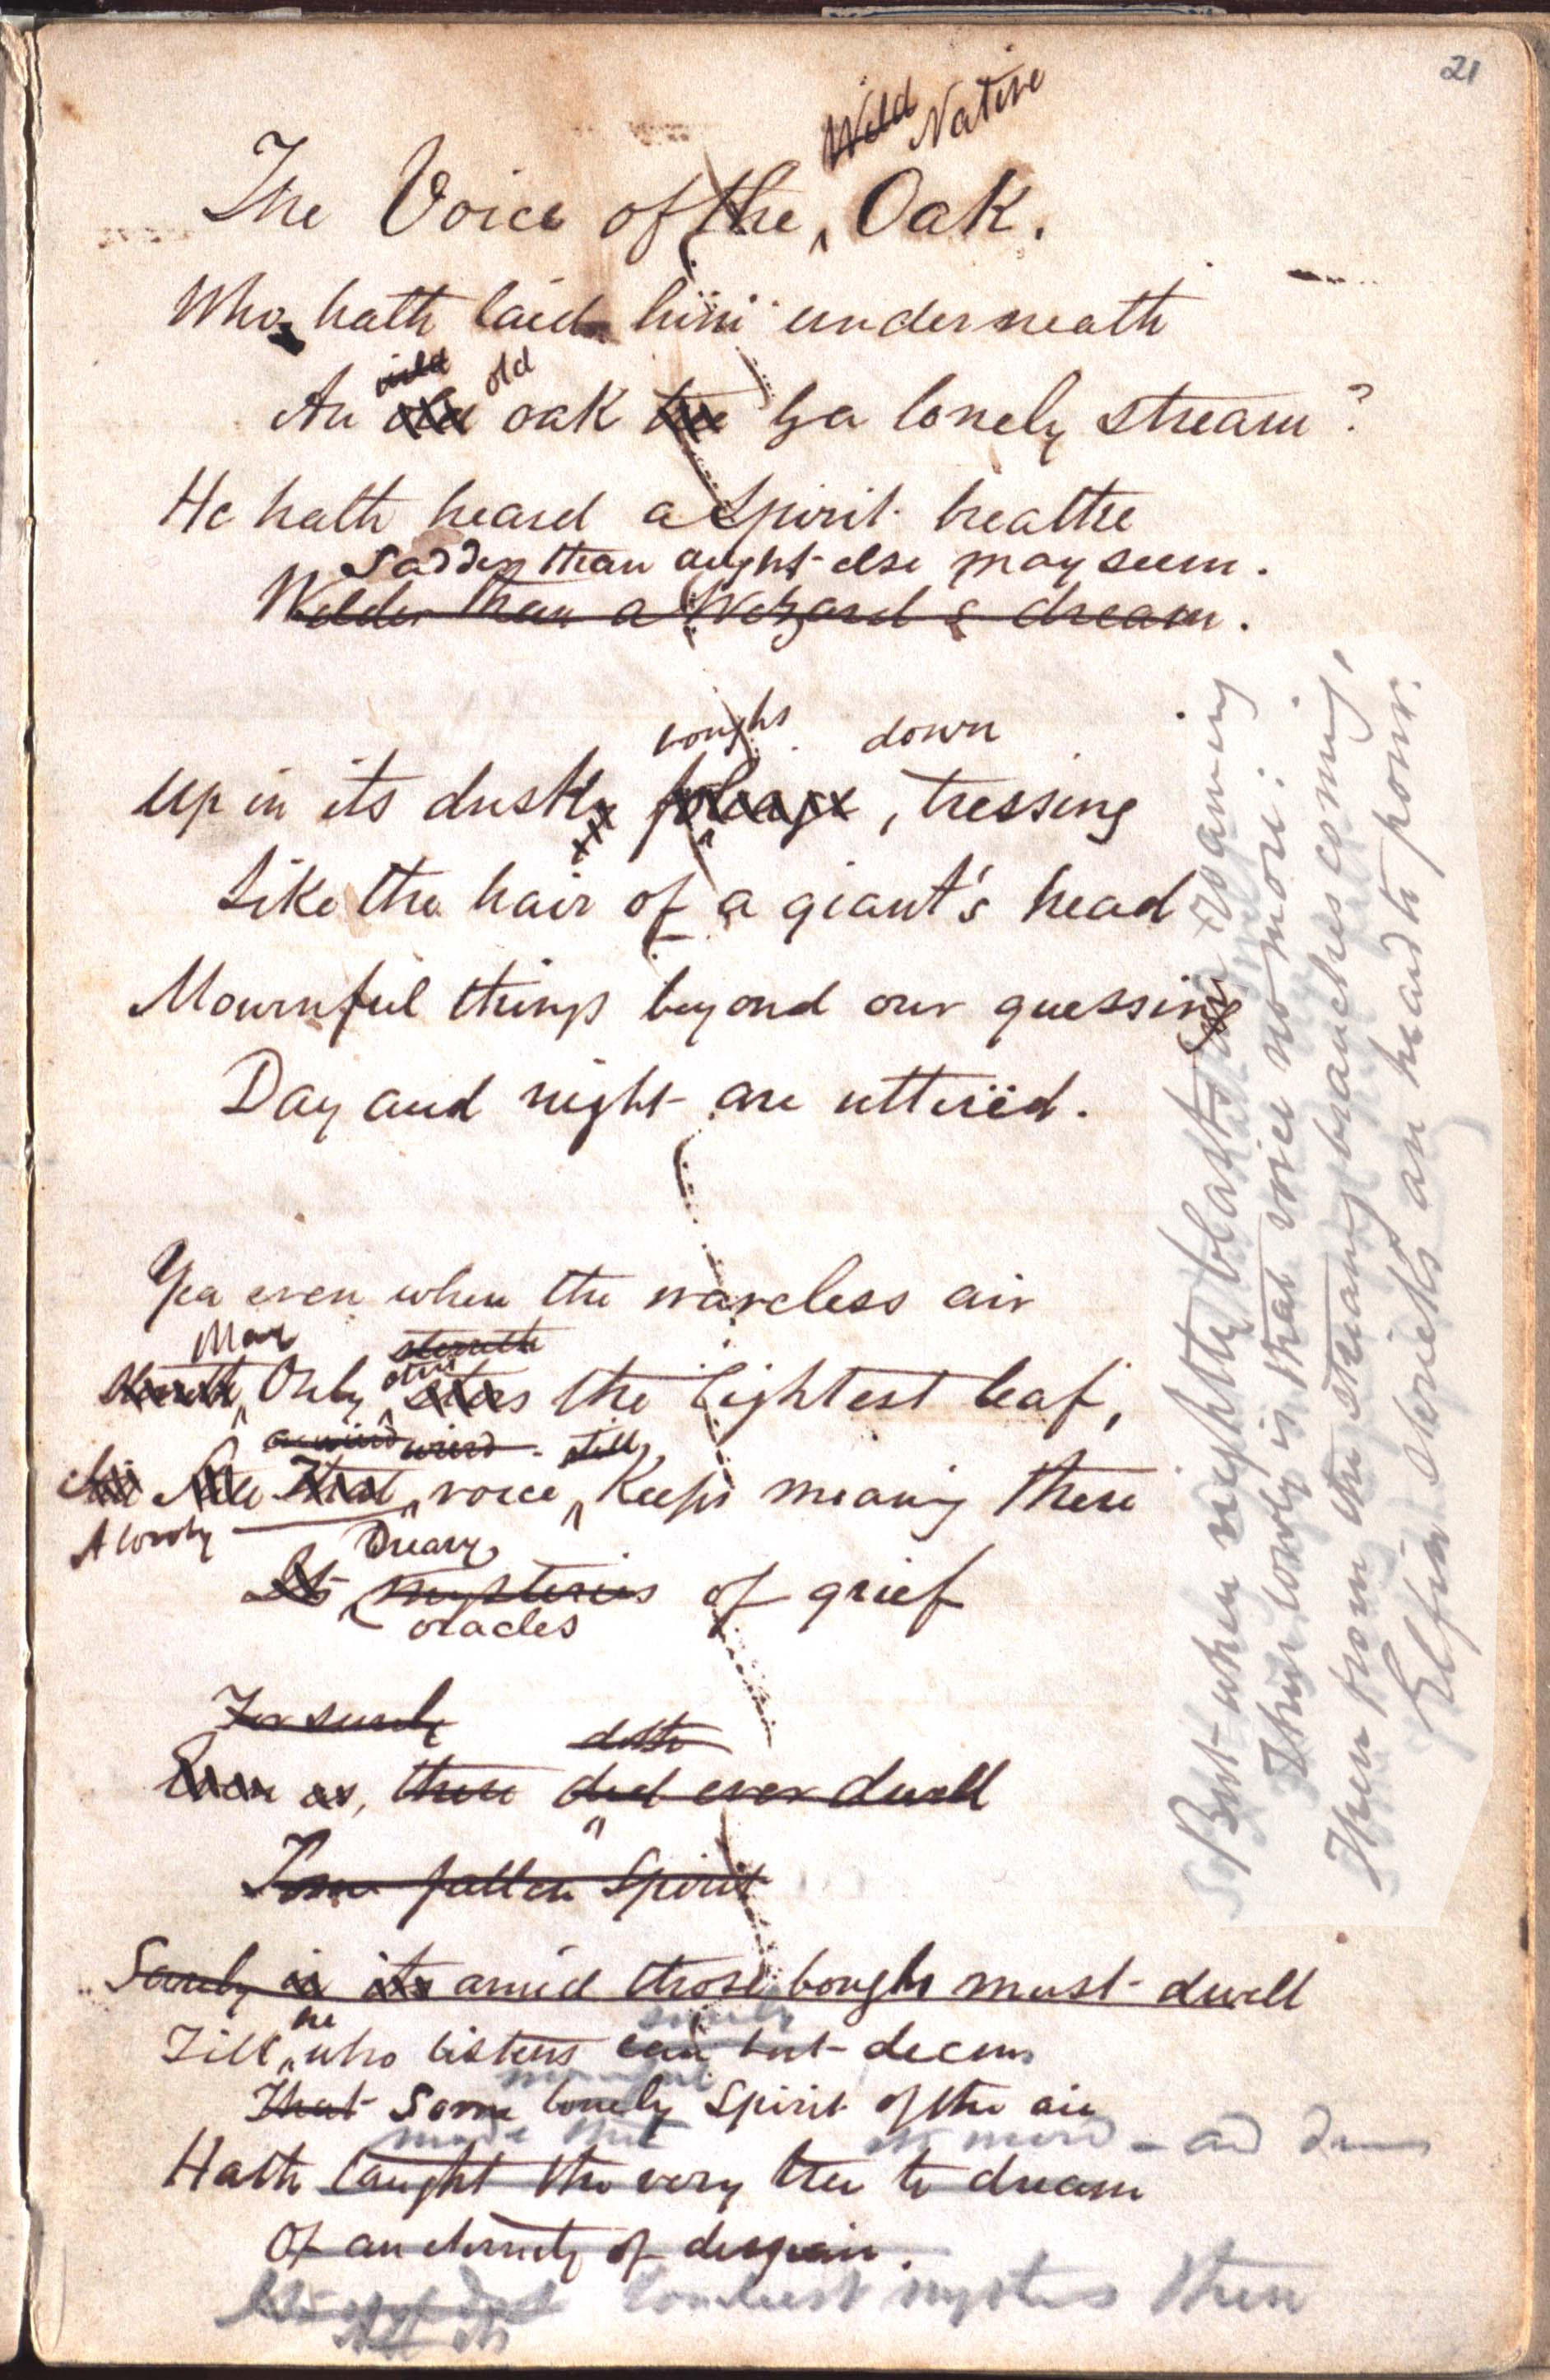 21
Wild Native
The Voice of the Oak.
Who hath laid him underneath
wild old
An old oak tree by a lonely stream?
He hath heard a spirit breathe
Sadder than aught else may seem.
Wilder than a Wizard's dream.
boughs down
Up in its dusky foliage, tressing
Like the hair of a giant's head
Mournful things beyond our guessing
Day and night are utterëd.
Yea even when the waveless air
May stirreth
Only stirs the lightest leaf,
a weird weird still
That voice keeps moaning there
A lonely Dreary
Its mysteries of grief
oracles
For surely
doth
Even as, there did ever dwell
Some fallen Spirit
Surely is its amid those boughs must dwell
he surely
Till who listens can but deem
mournful
That some lonely spirit of the air
made that
Hath taught the very tree to dream
Of an eternity of despair.
there
But when mighty blasts are roaming
Then lonely is that voice no more:
Then from the streaming branches coming,
Elfin shrieks are heard to pour.